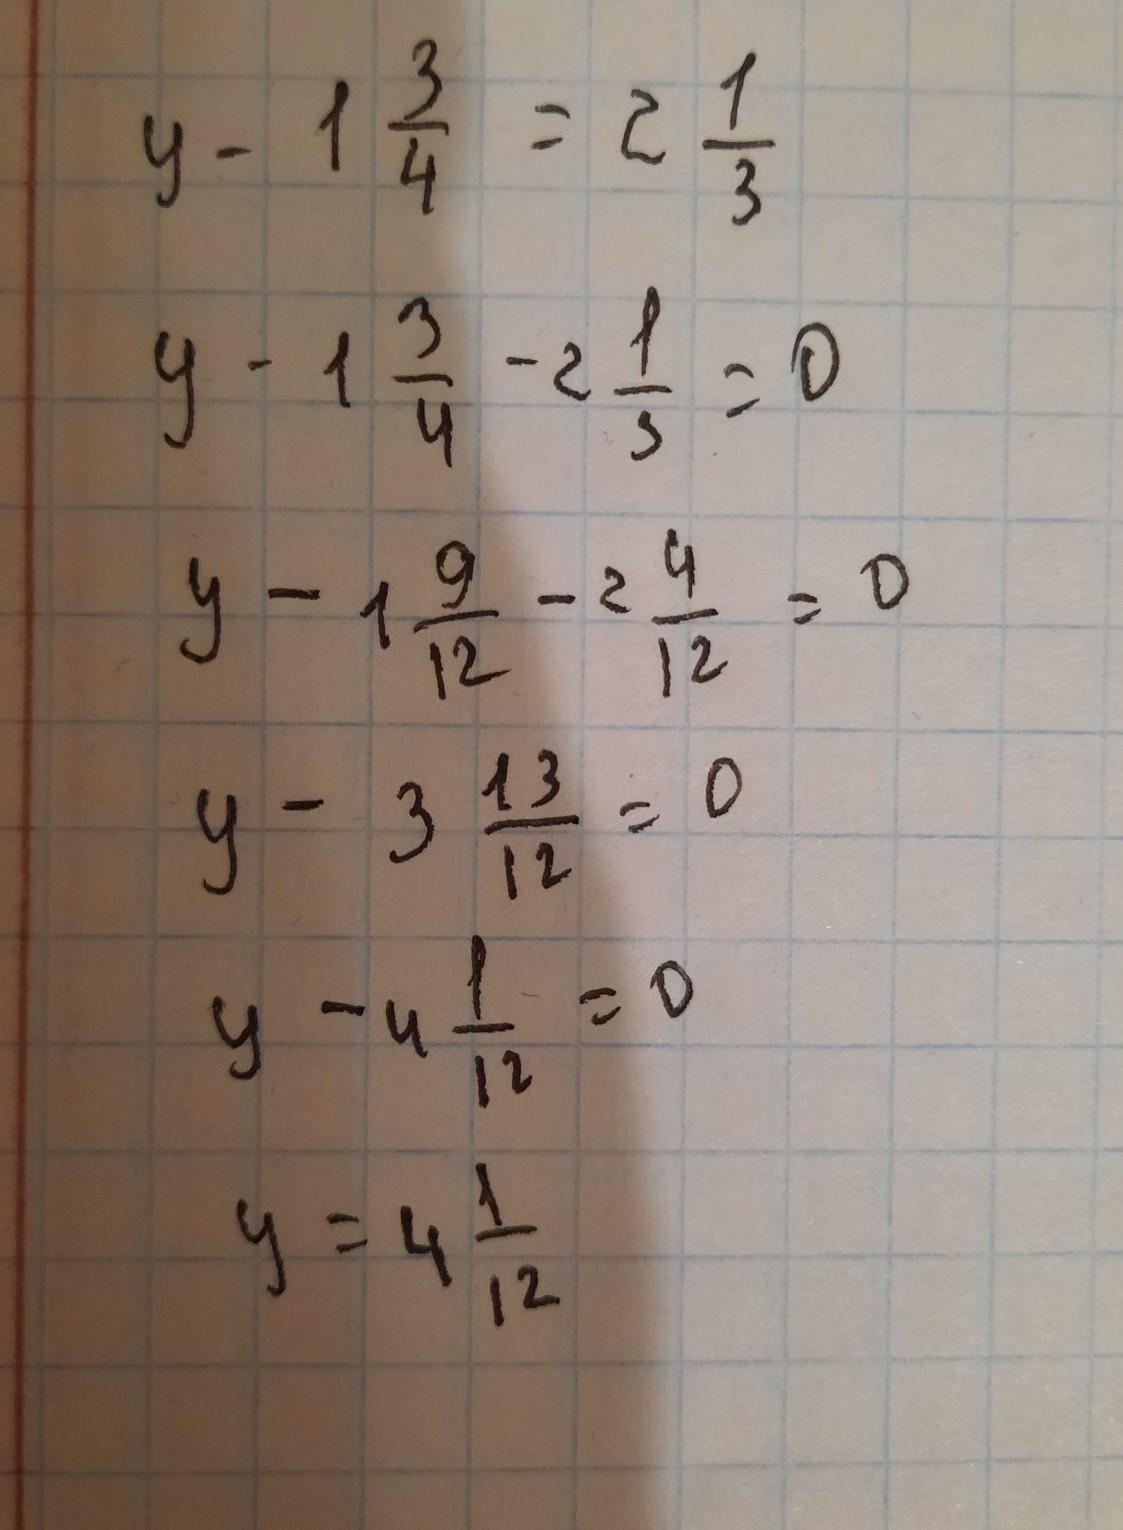 y - 1 3/4 = 2 1/3
y - 1 3/4 - 2 1/3 = 0
y - 1 9/12 - 2 4/12 = 0
y - 3 13/12 = 0
y - 4 1/12 = 0
y = 4 1/12